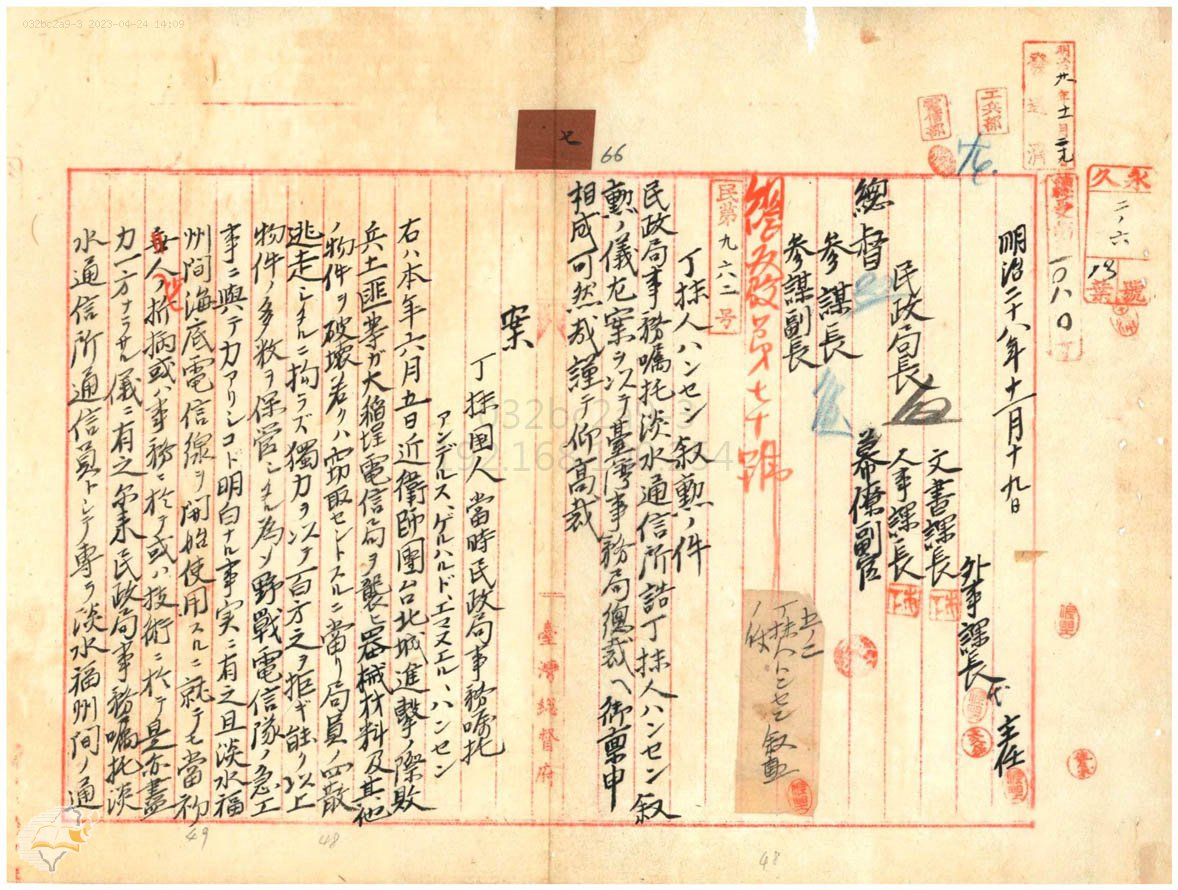 032bc2a9-3 2023-04-24 14:09
明治廿八年十一月二十九
發送濟
工兵部
電信部
永久
二ノ六
18
號
葉
一〇八〇
明治二十八年十一月十九日
外事課長代
主任
文書課長
人事課長
民政局長
幕僚副官
總督
參謀長
參謀副長
總民政第七十號
五ノ二
丁抹人ハンセン叙勲
ノ件
民第九六二号
丁抹人ハンセン叙勲ノ件
民政局事務嘱托淡水通信所詰丁抹人ハンセン叙
勲ノ儀左案ヲ以テ臺灣事務局總裁ヘ御稟申
相成可然哉謹テ仰高裁
案
臺灣總督府
丁抹国人當時民政局事務嘱托
アンデルス、ゲルハルド、エマヌエル、ハンセン
右ハ本年六月五日近衛師團台北城進擊ノ際敗
兵土匪等ガ大稲埕電信局ヲ襲ヒ器械材料及其他
ノ物件ヲ破壊若クハ窃取セントスルニ當リ局員ノ四散
逃走シタルニ拘ラズ獨力ヲ以テ百方之ヲ拒ギ能ク以上
物件ノ多数ヲ保管シタル為メ野戰電信隊ノ急工
事ニ與テ力アリシコト明白ナル事実ニ有之且淡水福
州間海底電信線ヲ開始使用スルニ就テモ當初
人ノ折衝或ハ事務ニ於テ或ハ技術ニ於テ是亦盡
力一方ナラサル儀ニ有之尓来民政局事務嘱托淡
水通信所通信員トシテ專ラ淡水福州間ノ通
七
66
49
48
48
032bc2a9-3